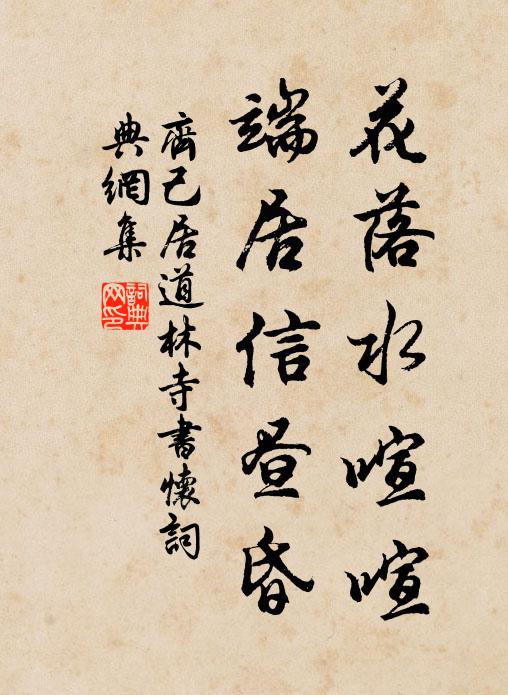 花落水喧喧
端居信昼昏
齊己居道林寺書懷詞
典網集
詞典網印